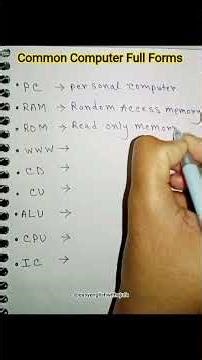 Common Computer Full Forms
• PC → personal computer
• RAM → Random Access memory
• ROM → Read only memory
• WWW →
• CD →
• CU →
• ALU →
• CPU →
• IC →